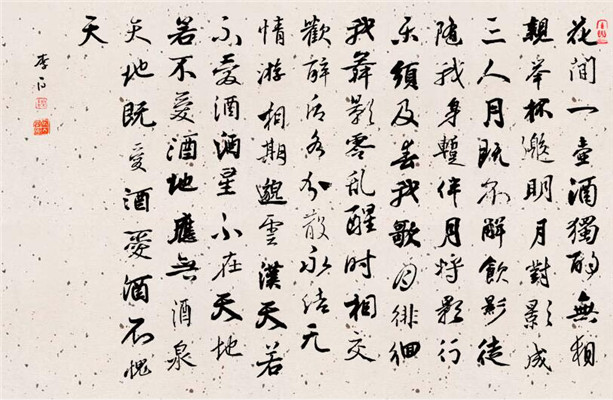 花間一壺酒獨酌無相
親举杯邀明月對影成
三人月既不解飲影徒
隨我身暫伴月将影行
乐須及春我歌月徘徊
我舞影零乱醒時相交
歡醉后各分散永结无
情游相期邈雲漢天若
不愛酒酒星不在天地
若不愛酒地應無酒泉
天地既愛酒愛酒不愧
天
李白